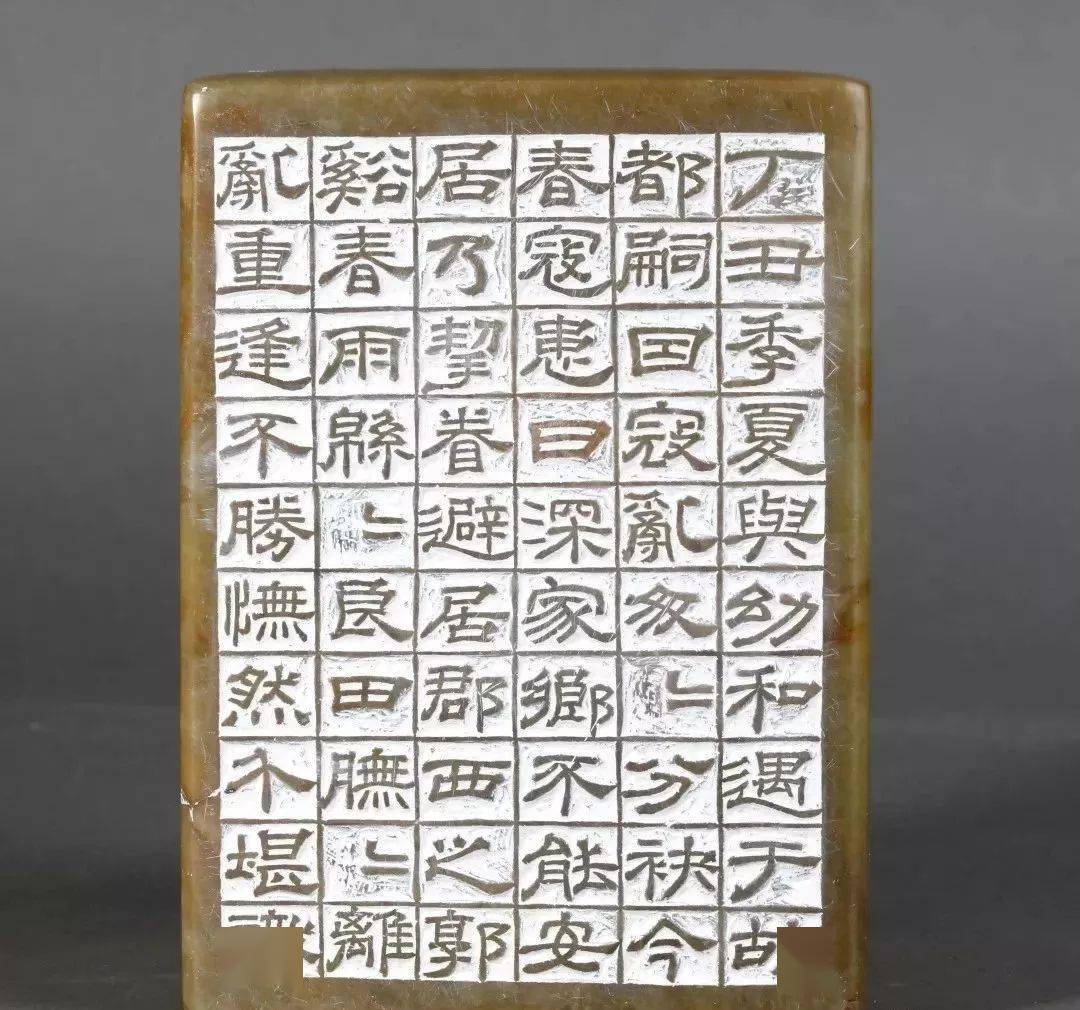 丁丑季夏與幼和遇于故
都嗣因寇亂匆〻分袂今
春寇患日深家鄉不能安
居乃挈眷避居郡西之郭
谿春雨緜〻良田膴〻離
亂重逢不勝憮然不堪